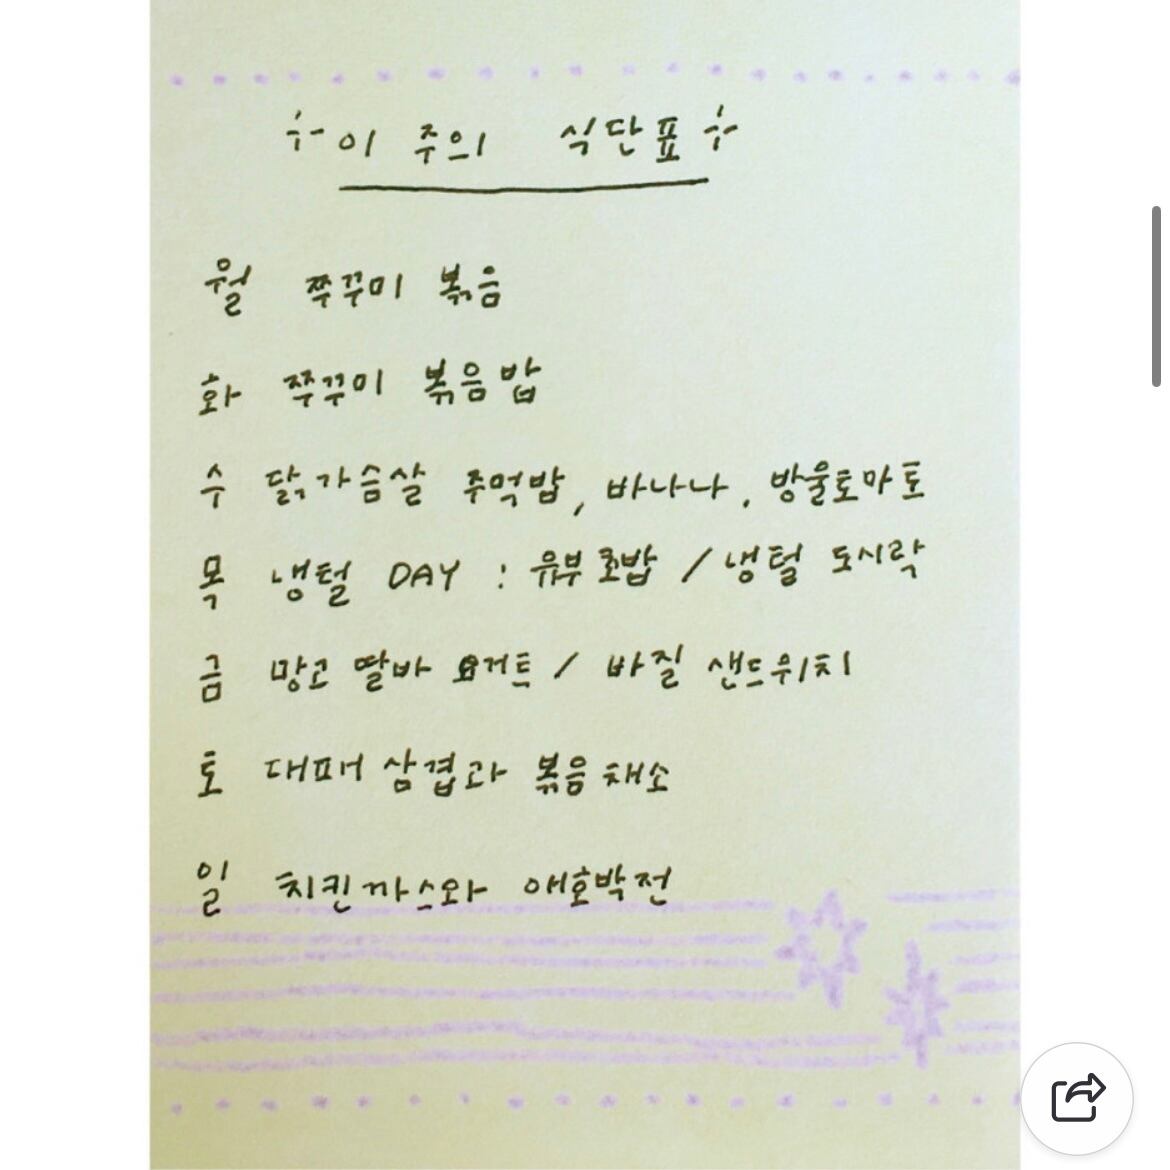 이 주의 식단표
월 쭈꾸미 볶음
화 쭈꾸미 볶음밥
수 닭가슴살 주먹밥, 바나나, 방울토마토
목 냉털 DAY : 유부초밥 / 냉털 도시락
금 망고 딸바 요거트 / 바질 샌드위치
토 대패삼겹과 볶음채소
일 치킨까스와 애호박전